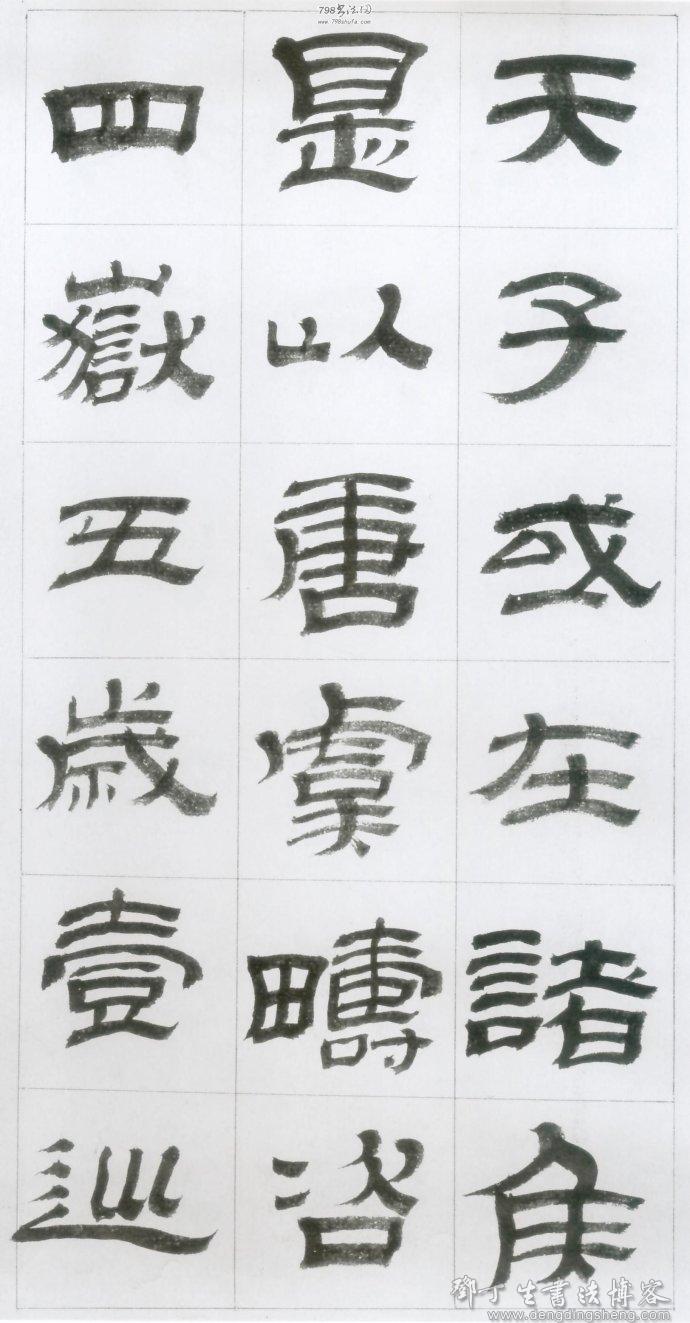 798书法网
www.798shufa.com
天子或在諸侯
是以唐虞疇咨
四嶽五歲壹巡
鄧丁生書法博客
www.dengdingsheng.com